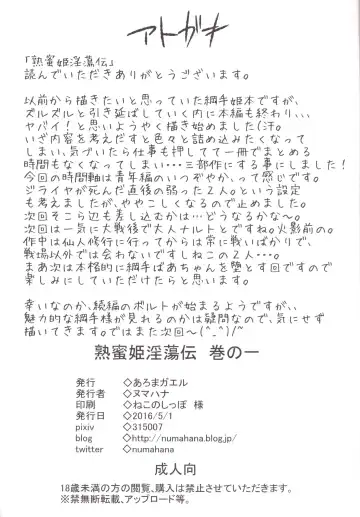 アトガキ
「熟蜜姫淫蕩伝」
読んでいただきありがとうございます。
以前から描きたいと思っていた綱手姫本ですが、
ズルズルと引き延ばしていく内に本編も終わり、、、
ヤバイ!と思いようやく描き始めました(汗。
いざ内容を考えだすと色々と詰め込みたくなって
しまい、気づいたら仕事も押してて一冊でまとめる
時間もなくなってしまい・・・三部作にする事にしました!
今回の時間軸は青年編のいつぞやか、って感じです。
ジライヤが死んだ直後の弱った2人。という設定
も考えましたが、ややこしくなるので止めました。
次回そこら辺も差し込むかは…どうなるかな〜。
次回は一気に大戦後で大人ナルトとですね。火影前の。
作中は仙人修行に行ってからは常に戦いばかりで、
戦場以外では会わないですしねこの2人・・・。
まあ次は本格的に綱手ばあちゃんを堕とす回ですので
楽しみにしていただけたらと思います。
幸いなのか、続編のボルトが始まるようですが、、
魅力的な綱手様が見れるのかは疑問なので、気にせず
描いてきます。ではまた次回〜(^_^)/~
熟蜜姫淫蕩伝 巻の一
発行 ◇あろまガエル
発行者 ◇ヌマハナ
印刷 ◇ねこのしっぽ 様
発行日 ◇2016/5/1
pixiv ◇315007
blog ◇http://numahana.blog.jp/
twitter ◇numahana
成人向
18歳未満の方の閲覧、購入は禁止させていただきます。
※禁無断転載、アップロード等。